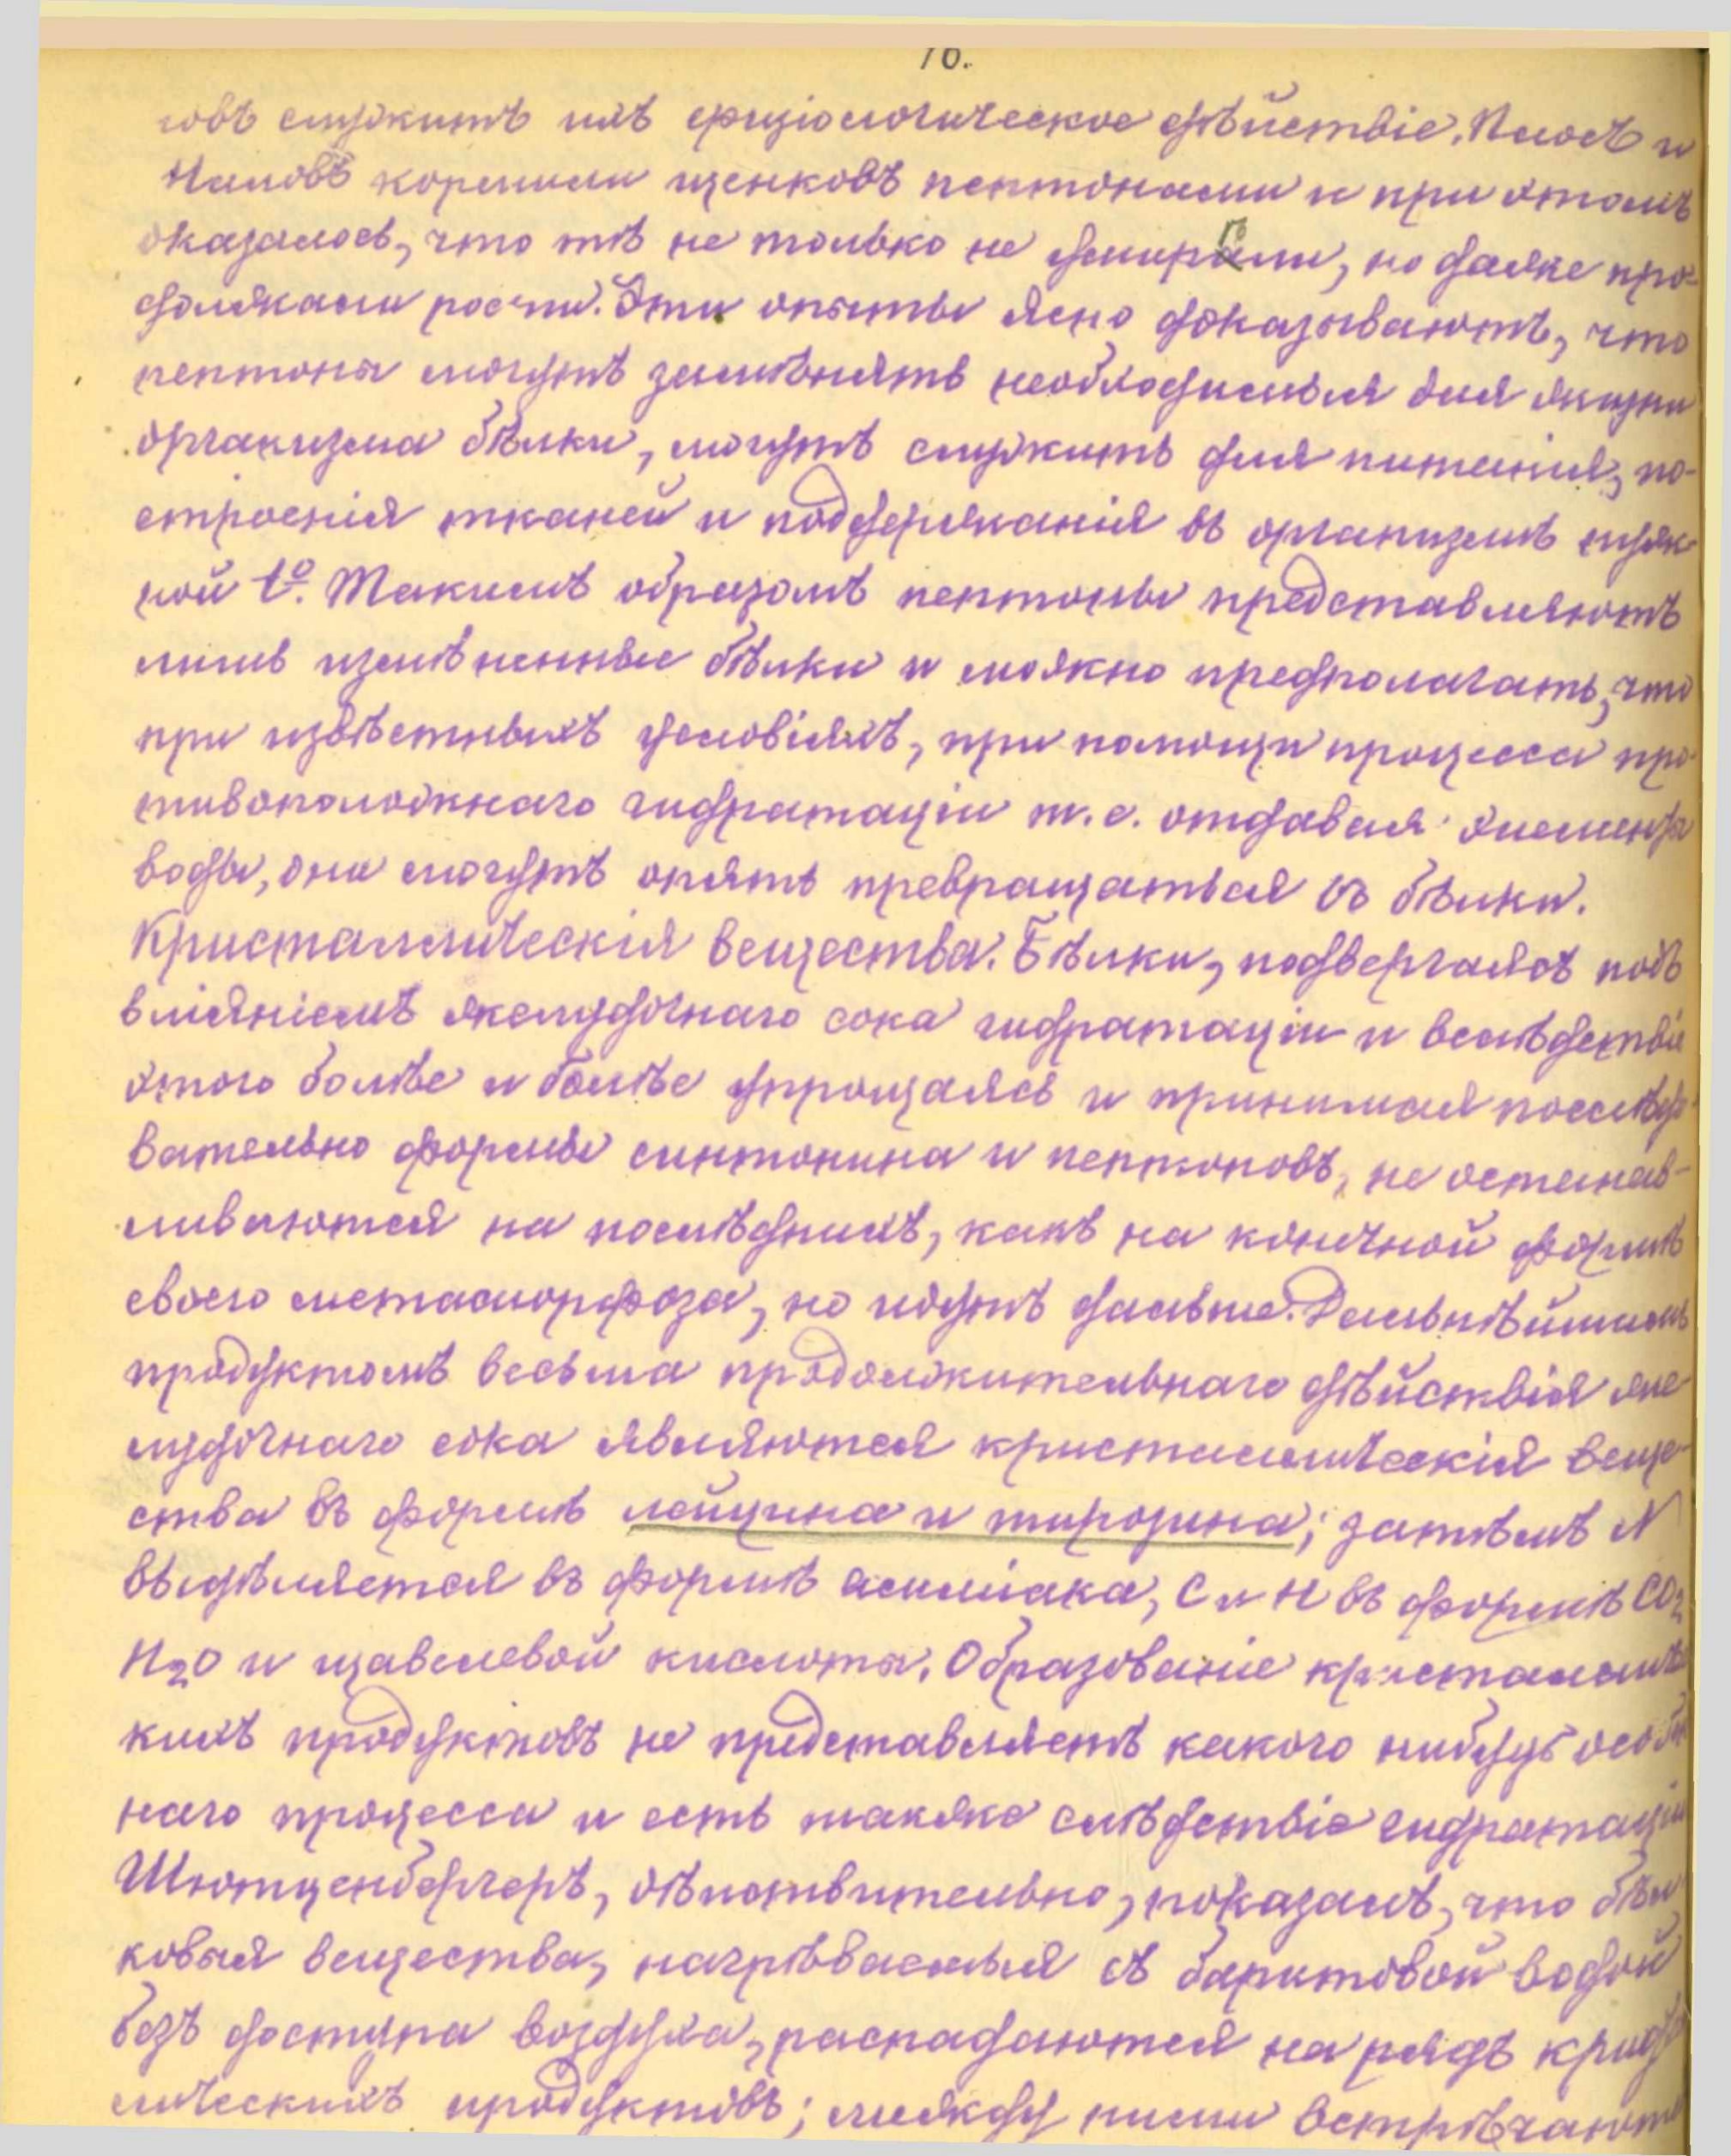 16.
новъ служитъ ихъ физіологическое дѣйствіе. Плосъ и
кормили щенковъ пептонами и при этомъ
оказалось, что тѣ не только не умирали, но даже про-
должали рости. Эти опыты ясно доказываютъ, что
пептоны могутъ замѣнять необходимыя для жизни
организма бѣлки, могутъ служить для питанія, по-
строенія тканей и поддержанія въ организмѣ нуж-
ной t°. Такимъ образомъ пептоны представляютъ
лишь измѣненные бѣлки и можно предполагать, что
при извѣстныхъ условіяхъ, при помощи процесса про-
тивоположнаго гидратаціи т.е. отдавая элементы
воды, они могутъ опять превращаться въ бѣлки.
Кристаллическія вещества. Бѣлки, подвергаясь подъ
вліяніемъ желудочнаго сока гидратаціи и вслѣдствіе
этого болѣе и болѣе упрощаясь и принимая послѣдо-
вательно формы синтонина и пептоновъ, не останав-
ливаются на послѣднихъ, какъ на конечной формѣ
своего метаморфоза, но идутъ дальше. Дальнѣйшимъ
продуктомъ весьма продолжительнаго дѣйствія же-
лудочнаго сока являются кристаллическія веще-
ства въ формѣ лейцина и тирозина; затѣмъ N
выдѣляется въ формѣ амміака, C и H въ формѣ CO2
H2O и щавелевой кислоты. Образованіе кристалличес
кихъ продуктовъ не представляетъ какого нибудь особен
наго процесса и есть также слѣдствіе гидратаціи
Шютценбергеръ, дѣйствительно, показалъ, что бѣл
ковыя вещества, нагрѣваемыя съ баритовой водой
безъ доступа воздуха, распадаются на рядъ крист
лическихъ продуктовъ; между ними встрѣчаются